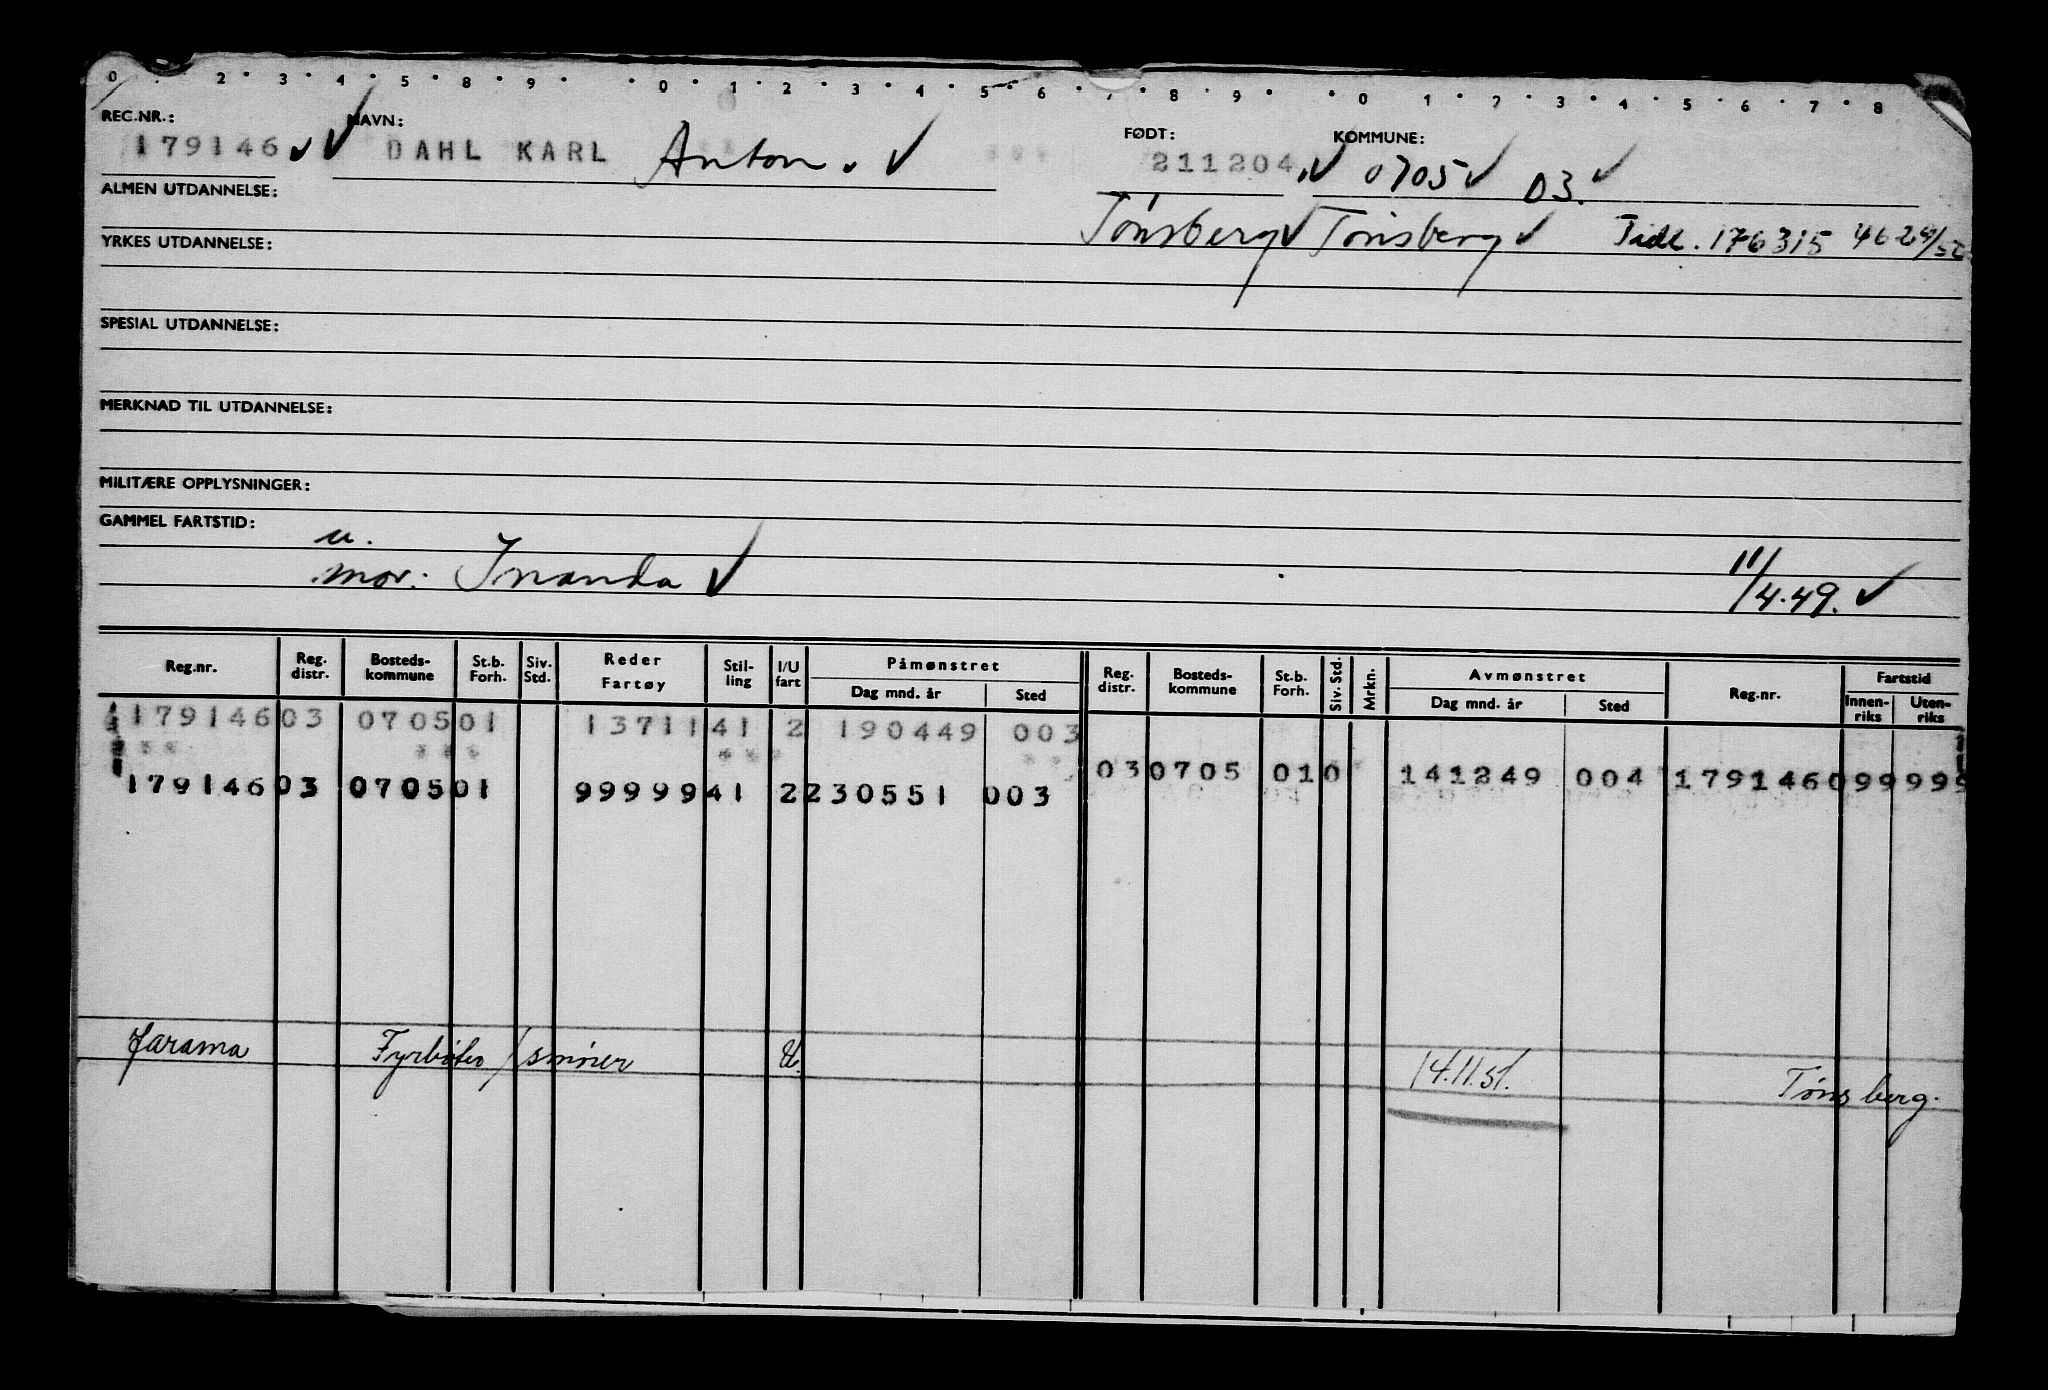 0 . 2 . 3 . 4 . 5 . 8 . 9 . . 0 . 1 . 2 . 3 . 4 . 5 . 6 . 7 . 8 . 9 . . 0 . 1 . 2 . 3 . 4 . 5 . 6 . 7 . 8 .
REG.NR.: NAVN: FØDT: KOMMUNE:
179146 DAHL KARL Anton. 211204 0705 03.
ALMEN UTDANNELSE:
Tønsberg Tønsberg Tidl. 176315
YRKES UTDANNELSE:
SPESIAL UTDANNELSE:
MERKNAD TIL UTDANNELSE:
MILITÆRE OPPLYSNINGER:
GAMMEL FARTSTID:
u.
mor. Inanda 11/4.49.
Reg.nr. Reg. distr. Bosteds-kommune St.b. Forh. Siv. Std. Reder Fartøy Stil-ling I/U fart Påmønstret Dag mnd. år Sted Reg. distr. Bosteds-kommune St.b. Forh. Siv. Std. Mrkn. Avmønstret Dag mnd. år Sted Reg.nr. Fartstid Innen-riks Uten-riks
179146 03 0705 01 13711 41 2 190449 003
*** *** *** **
03 0705 01 0 141249 004 179146 099 999
179146 03 0705 01 99999 41 2 230551 003
Jarama Fyrbøter / smører U. 14.11.51. Tønsberg.